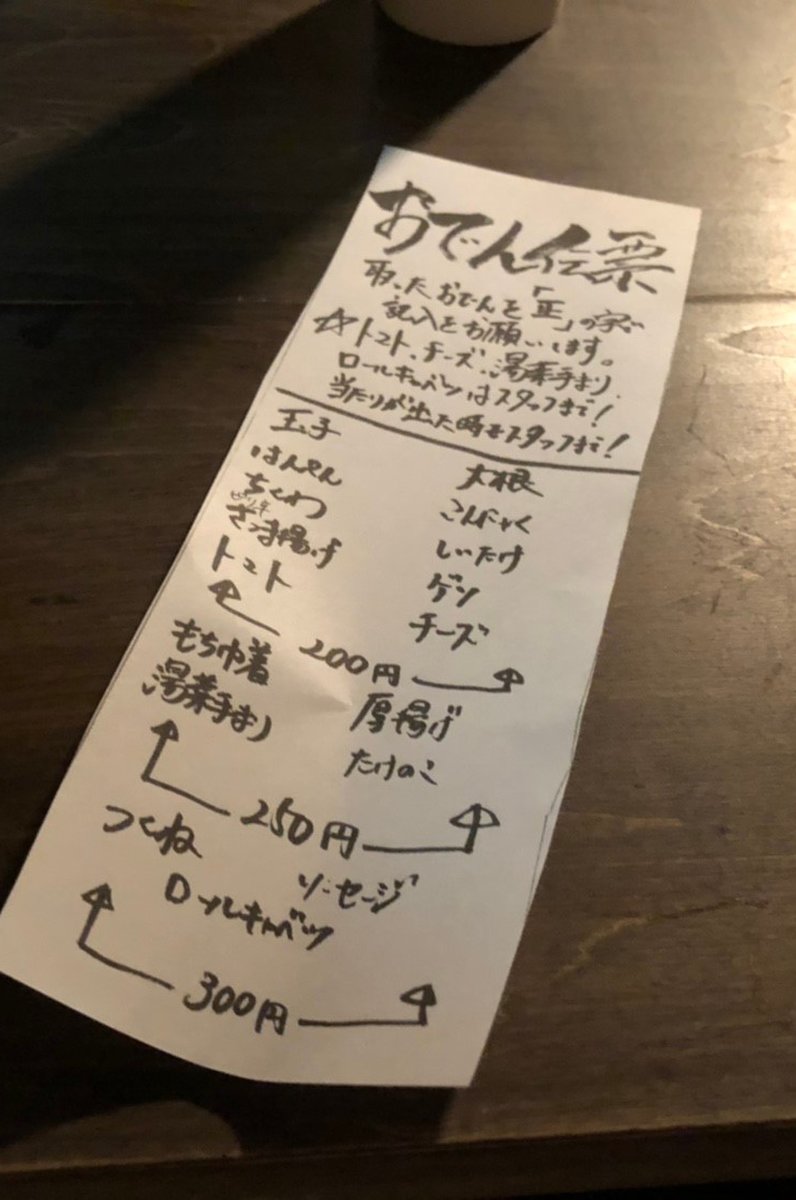 おでん伝票
取ったおでんを「正」の字で
記入をお願いします。
☆トマト、チーズ、湯葉手まり、
ロールキャベツはスタッフまで!
当たりが出た時もスタッフまで!
玉子
はんぺん
ちくわ
さつま揚げ
トマト
大根
こんにゃく
しいたけ
ゲソ
チーズ
200円
もち巾着
湯葉手まり
厚揚げ
たけのこ
250円
つくね
ソーセージ
ロールキャベツ
300円